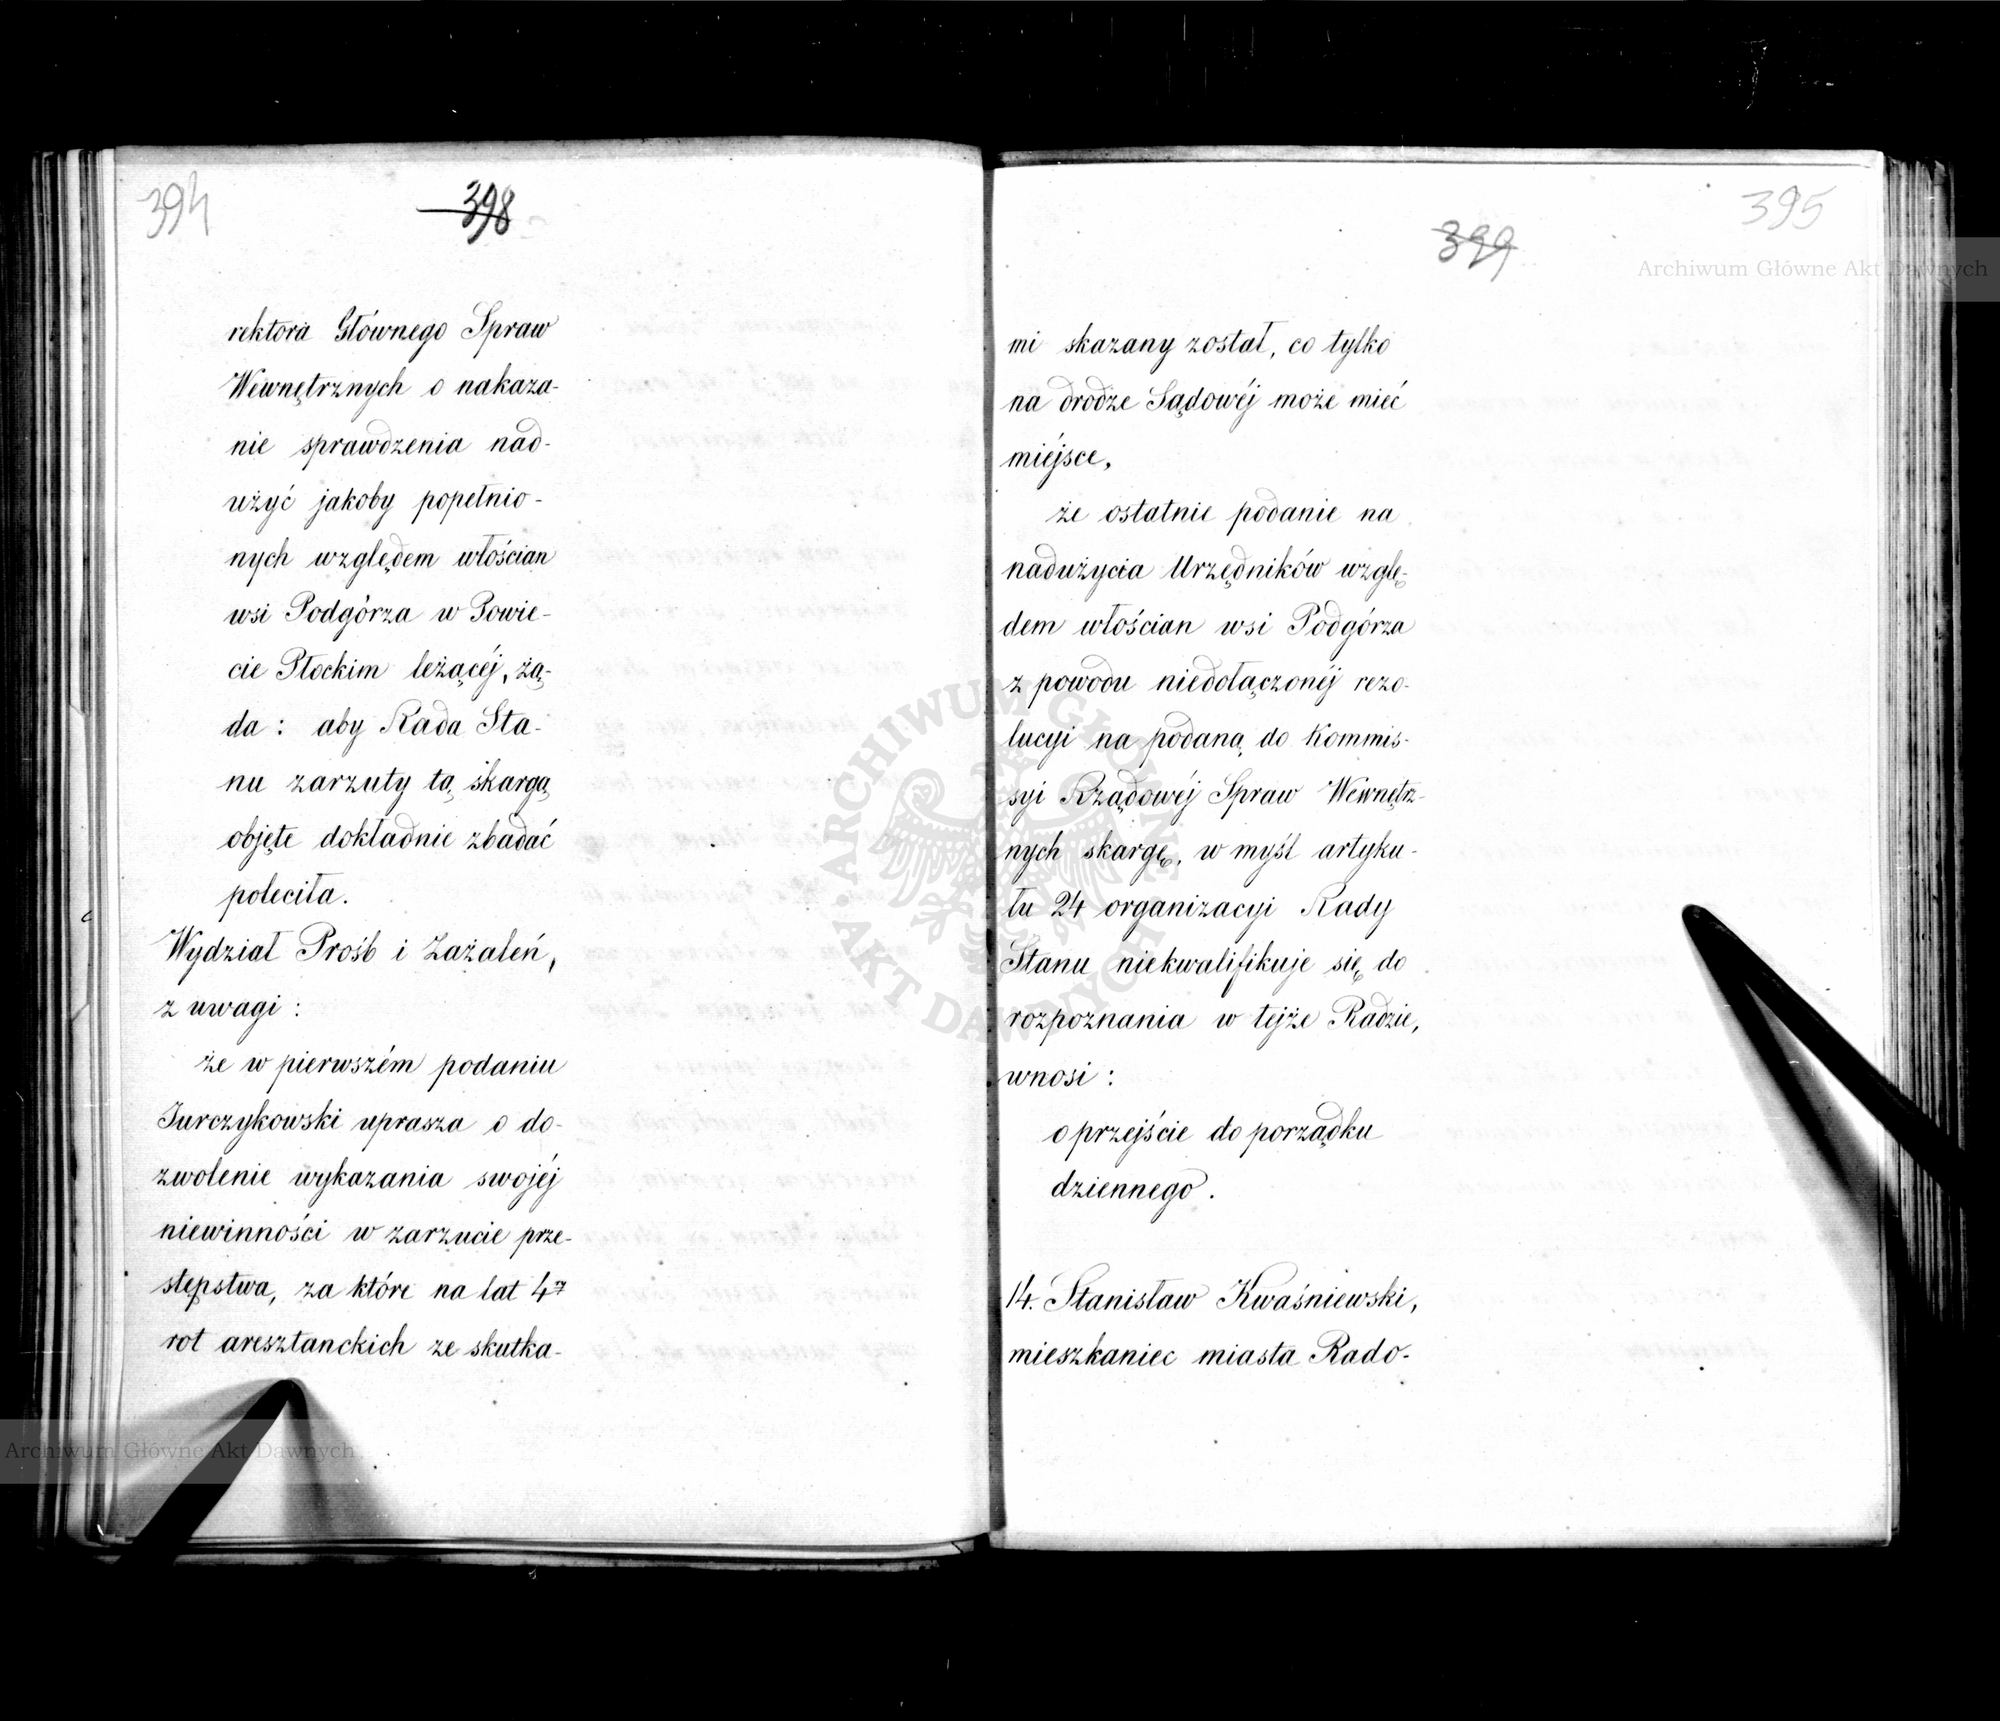 394
398
rektora Głównego Spraw
Wewnętrznych o nakaza-
nie sprawdzenia nad-
użyć jakoby popełnio-
nych względem włościan
wsi Podgórza w Powie-
cie Płockim leżącéj, żą-
da: aby Rada Sta-
nu zarzuty tą skargą
objęte dokładnie zbadać
poleciła.
Wydział Prośb i Zażaleń,
z uwagi:
że w pierwszém podaniu
Jurczykowski uprasza o do-
zwolenie wykazania swojéj
niewinności w zarzucie prze-
stępstwa, za które na lat 4ry
rot aresztanckich ze skutka-
395
399
mi skazany został, co tylko
na drodze Sądowéj może mieć
miéjsce,
że ostatnie podanie na
nadużycia Urzędników wzglę-
dem włościan wsi Podgórza
z powodu niedołączonéj rezo-
lucyi na podaną do Kommis-
syi Rządowéj Spraw Wewnętrz-
nych skargę, w myśl artyku-
łu 24 organizacyi Rady
Stanu niekwalifikuje się do
rozpoznania w tejże Radzie,
wnosi:
o przejście do porządku
dziennego.
14. Stanisław Kwaśniewski,
mieszkaniec miasta Rado-
Archiwum Główne Akt Dawnych
Archiwum Główne Akt Dawnych
ARCHIWUM GŁÓWNE
AKT DAWNYCH